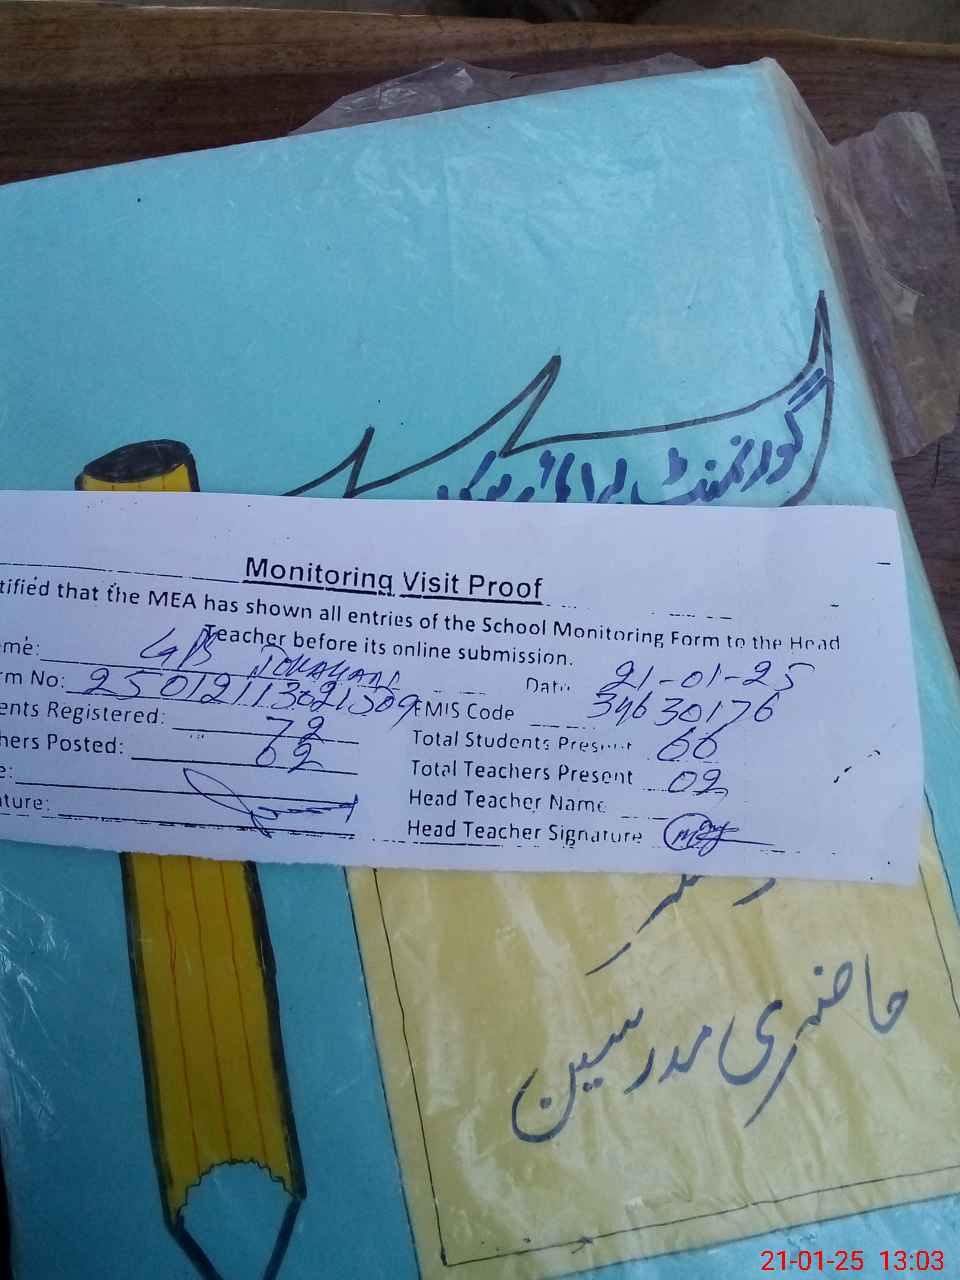 گورنمنٹ پرائمری سکول
Monitoring Visit Proof
tified that the MEA has shown all entries of the School Monitoring Form to the Head
Teacher before its online submission.
eme: GPS
Date 21-01-25
rm No: 25012113021309
EMIS Code 34630176
ents Registered: 72
Total Students Present 66
hers Posted: 02
Total Teachers Present 02
e:
Head Teacher Name
ature:
Head Teacher Signature
رجسٹر
حاضری مدرسین
21-01-25 13:03